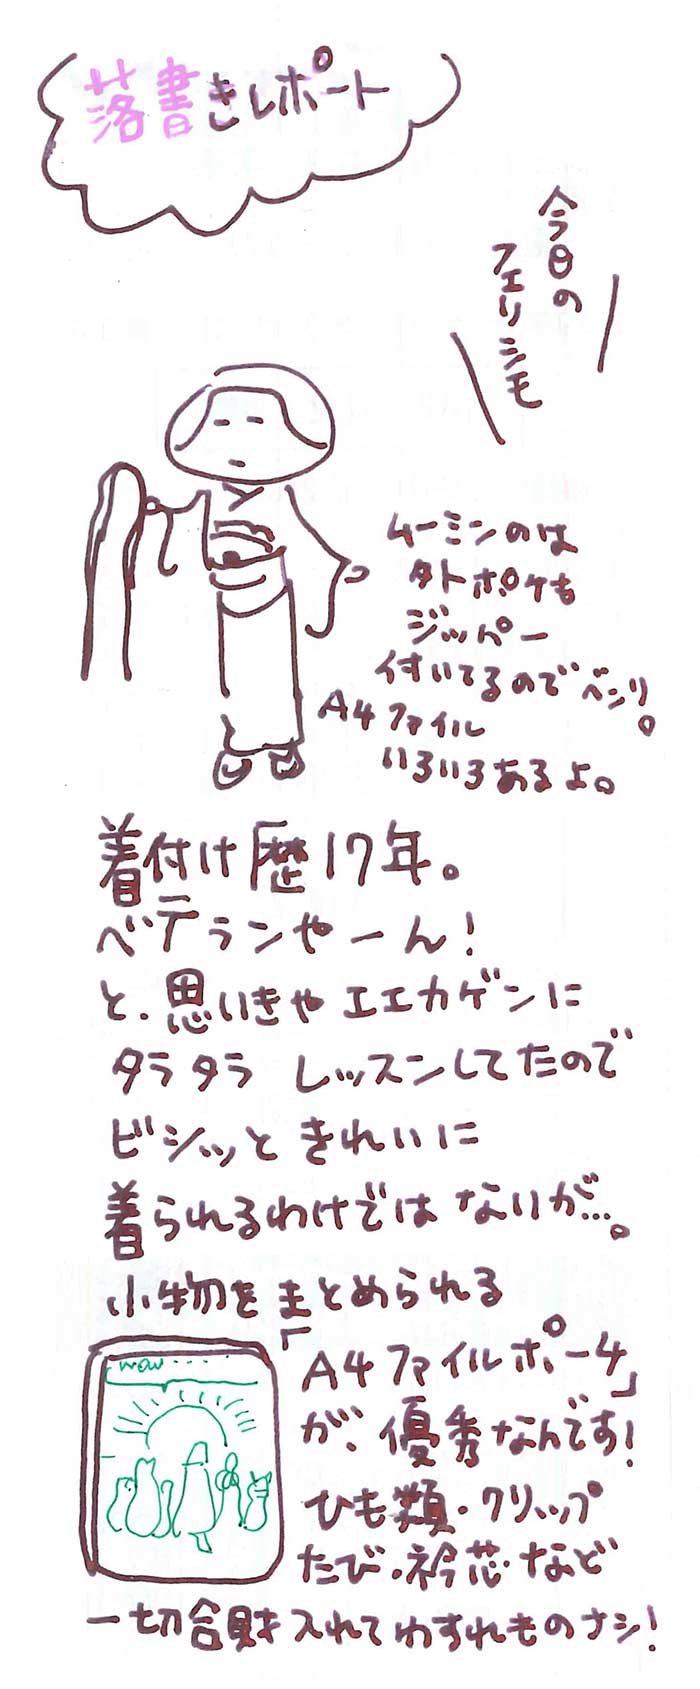 落書きレポート
今日の
フェリシモ
ムーミンのは
外ポケも
ジッパー
付いてるのでベンリ。
A4ファイル
いろいろあるよ。
着付け歴17年。
ベテランやーん!
と、思いきやエエカゲンに
タラタラ レッスンしてたので
ビシッときれいに
着られるわけではないが…。
小物をまとめられる
「A4ファイルポーチ」
が、優秀なんです!
ひも類・クリップ
たび・衿芯など
一切合財入れてわすれものナシ!
wow....